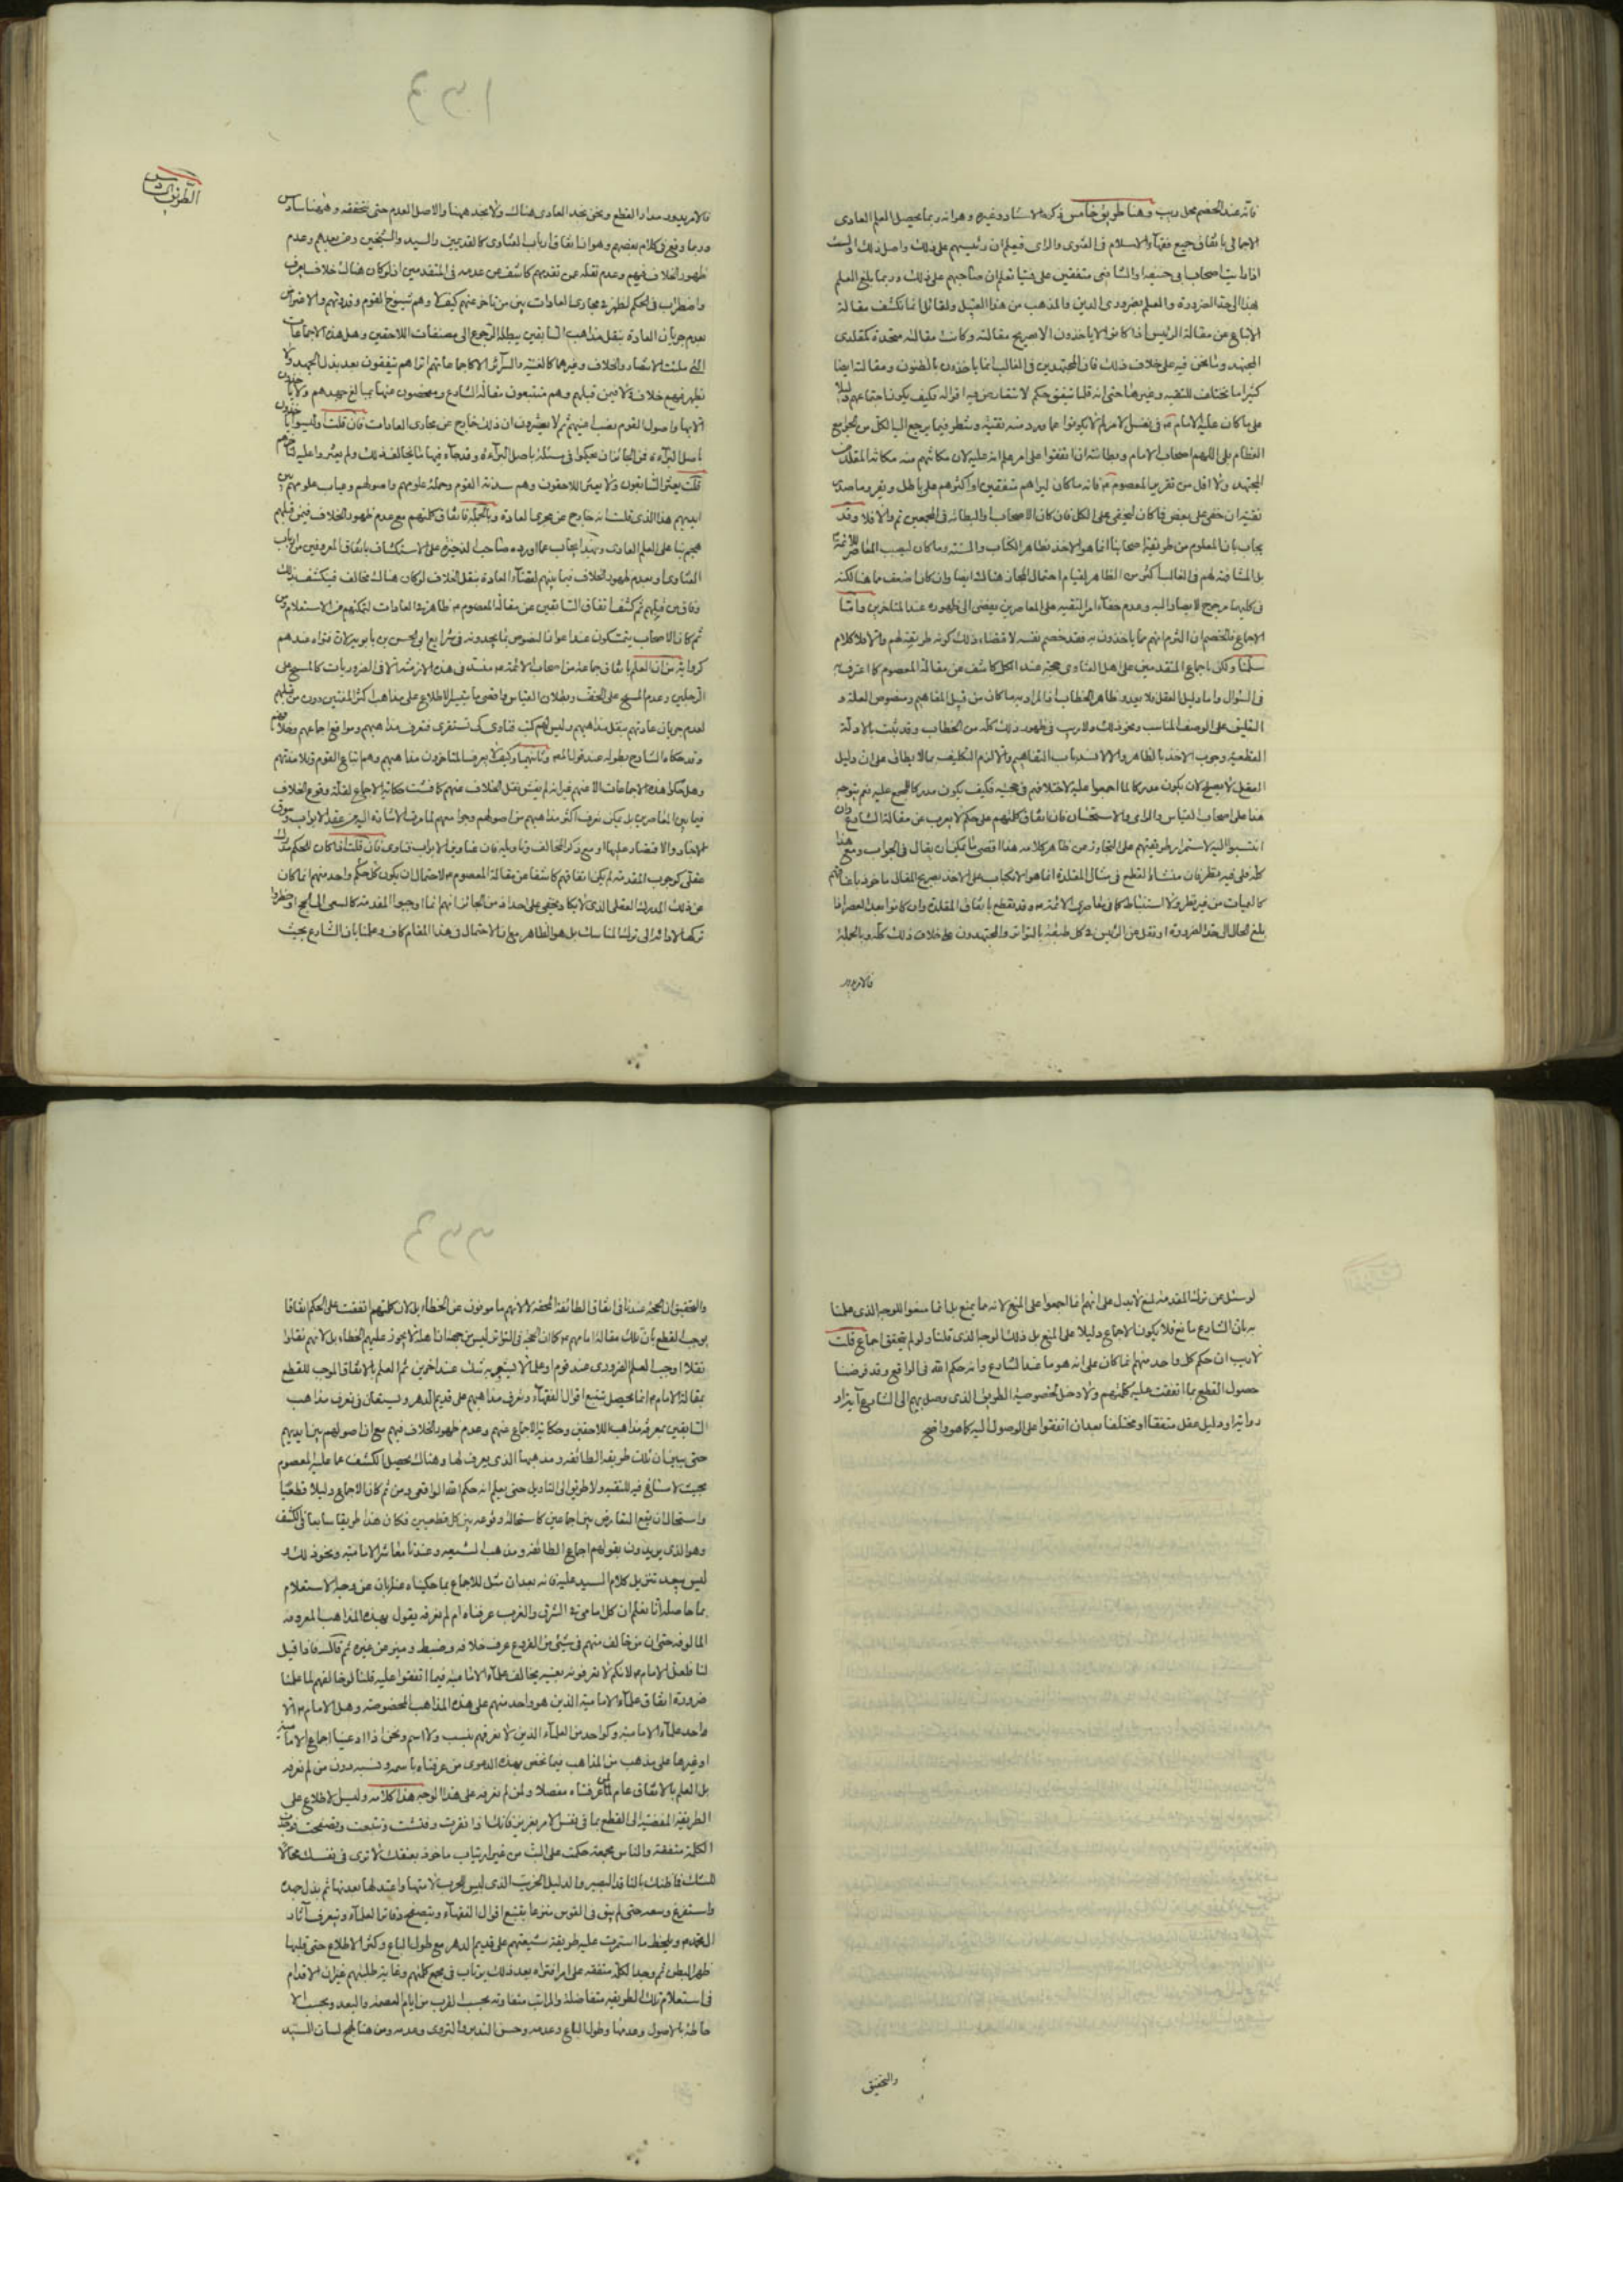 فانه عند الخصم محل ريب وهنا طريق خامس ذكره الاستاد وغيره وهو انه ربما يحصل العلم العادى
الاجمالى باتفاق جميع فقهاء الاسلام فى الفتوى والراى فيعلم ان رئيسهم على ذلك واصل ذلك انك
اذا رايت اصحاب ابى حنيفة او الشافعى متفقين على فتيا تعلم ان صاحبهم على ذلك وربما بلغ العلم
بهذا الى حد الضرورة والعلم بضرورى الدين والمذهب من هذا القبيل ولقائل انما تكشف مقالة
الاتباع عن مقالة الرئيس اذا كانوا لا ياخذون الا صريح مقالته وكانت مقالته متحدة كمقلدى
المجتهد وما نحن فيه على خلاف ذلك فان المجتهدين فى الغالب انما ياخذون بالظنون ومقالته ايضا
كثيرا ما تختلف للتقية وغيرها حتى انه قلما يتفق حكم لا تتعارض فيه اقواله فكيف يكون اجتماعهم دليلا
على ما كان عليه الامام فى نفس الامر
العظام بلى اللهم اصحاب الامام وبطانته اذا اتفقوا على امر علم انه عليه لان مكانتهم منه مكانة المقلد من
المجتهد ولا اقل من تقرير المعصوم فانه ما كان ليراهم متفقين او اكثرهم على باطل ويقر وما صدر
تقية ان خفى على بعض فما كان ليخفى على الكل فان كان الاصحاب والبطانة فى المجمعين تم والا فلا وقد
يجاب بان المعلوم من طريقة اصحابنا انما هو الاخذ بظاهر الكتاب والسنة وما كان ليجب المعاصر للائمة
بل المشافه لهم فى الغالب اكثر من الظاهر لقيام احتمال المجاز هناك ايضا وان كان اضعف مما هنا لكنه
فى كليهما مرجوح لا يصار اليه وعدم خفاء امر التقية على المعاصرين يفضى الى ظهوره عند المتاخرين واما
الاجماع فالخصم ان التزم انهم مما ياخذون به فقد خصم نفسه لاقتضاء ذلك كونه طريقة لهم والا فلا كلام
سلمنا ولكن اجماع المتقدمين على اهل الفتاوى حجة عند الكل كاشف عن مقالة المعصوم كما اعترف به
فى السؤال واما دليل العقل فلا يعدو ظاهر الخطاب اذ المراد به ما كان من قبيل المفاهيم ومنصوص العلة و
التعليق على الوصف المناسب ونحو ذلك ولا ريب فى ظهور ذلك كله من الخطاب وقد ثبت بالادلة
القطعية وجوب الاخذ بالظاهر والا لانسد باب التفاهم والا لزم التكليف بما لا يطاق على ان دليل
العقل لا يصلح لان يكون مدركا لما اجمعوا عليه لاختلافهم فى حجيته فكيف يكون مدركا للمجمع عليه نعم يتوجه
هذا على اصحاب القياس والراى والاستحسان فان اتفاق كلمتهم على حكم لا يعرب عن مقالة الشارع وان
انتسبوا اليه لاستمرار طريقتهم على التجاوز عن ظاهر كلامه هذا اقصى ما يمكن ان يقال فى الجواب ومع هذا
كله فى غير نظر فان منشاء القطع فى مثال المقلدة انما هو الانكباب على الاخذ بصريح المقال ماخوذ باعناقهم
كالعيان من غير تطرق لاستنباط كما فى معاصرى الائمة وقد نقطع باتفاق المقلدة وان كانوا بعد العصر اذا
بلغ الحال الى حد الضرورة او نقل عن الرئيس فى كل طبقة بالتواتر والمجتهدون على خلاف ذلك كله وبالجملة
فالامر يدور
١٣٣
الطريق السادس
فالامر يدور مدار القطع ونحن نجد العادى هناك ولا نجد ههنا والاصل العدم حتى نتحققه وههنا سادس
وربما وقع فى كلام بعضهم وهو ان اتفاق ارباب الفتاوى كالقديمين والسيد والشيخين ومن بعدهم وعدم
ظهور الخلاف فيهم وعدم نقله عن تقدمهم كاشف عن عدمه فى المتقدمين اذ لو كان هناك خلاف يعرف
واضطراب فى الحكم لظهر فى مجارى العادات بين من تاخر عنهم كيف لا وهم شيوخ القوم وقدوتهم والاعتراض
بعدم جريان العادة بنقل مذاهب السابقين يبطله الرجوع الى مصنفات اللاحقين وهل هذه الاجماعات
التى ملئت الانتصار والخلاف وغيرهما كالغنية والسرائر الا كاجماعاتهم اتراهم يتفقون بعد بذل الجهد ولا
يظهر فيهم خلاف فيمن قبلهم وهم متتبعون مقالة الشارع ومفحصون عنها بمبالغ جهدهم ولا ياخذون
الا بها واصول القوم نصب اعينهم ثم لا يعثرون ان ذلك خارج عن مجارى العادات فان قلت اوليسوا ياخذون
باصل البراءة فمن الجائز ان يحكموا فى مسئلة باصل البراءة وقد جاء فيها ما يخالف ذلك ولم يعثروا عليه
قلت يعثر السابقون ولا يعثر اللاحقون وهم سدنة القوم وحملة علومهم واصولهم وعياب علومهم بين
ايديهم هذا الذى قلت انه خارج عن مجرى العادة وبالجملة فاتفاق كلمتهم مع عدم ظهور الخلاف فيمن قبلهم
يهجم بنا على العلم العادى وبهذا يجاب عما اورده صاحب الذخيرة على الاستكشاف باتفاق المعروفين من ارباب
الفتاوى وبعدم ظهور الخلاف فيما بينهم لقضاء العادة بنقل الخلاف لو كان هناك مخالف فيكشف ذلك
وفاق من قبلهم ثم كشف اتفاق السابقين عن مقالة المعصوم ظاهر فى العادات لتمكنهم من الاستعلام
ثم كان الاصحاب يتمسكون عند اعواز النصوص بما يجدونه فى شرايع ابى الحسن بن بابويه لان فتواه عندهم
كروايته من ان العلم باتفاق جماعة من اصحاب الائمة متعذر فى هذه الازمنة الا فى الضروريات كالمسح على
الرجلين وعدم المسح على الخف وبطلان القياس فاقصى ما يتيسر الاطلاع على مذاهب اكثر المفتين دون من قبلهم
لعدم جريان عادتهم بنقل مذاهبهم وليس لهم كتب فتاوى كى تستقرى فتعرف مذاهبهم ومواقع اجماعهم وخلافهم
وقد حكاه الشارح بطوله عند قول المصـ وثانيهما وكيف لا يعرف المتاخرون مذاهبهم وهم اتباع القوم وتلامذتهم
وهل حكوا هذه الاجماعات الا عنهم غير انه لم يفش نقل الخلاف عنهم كما فشت حكاية الاجماع لقلة وقوع الخلاف
فيما بين المعاصرين بل يمكن تعرف اكثر مذاهبهم من اصولهم وجوامعهم لما مر ضا الاشارة اليه من عقد الابواب وسوق
الاخبار والاقتصار عليها او مع ذكر المخالف وتاويله فان عناوين الابواب فتاوى فان قلت اذا كان الحكم مدرك
عقلى كوجوب المقدمة لم يكن اتفاقهم كاشفا عن مقالة المعصوم لاحتمال ان يكون حكم كل واحد منهم انما كان
عن ذلك المدرك العقلى الذى لا يكاد يخفى على احد اذ من الجائز انهم انما اوجبوا المقدمة كالسعى الى الحج او حظروا
تركها لادائه الى ترك المناسك بل هو الظاهر مع ان الاحتمال فى هذا المقام كاف وعلمنا بان الشارع بحيث
لو سئل عن ترك المقدمة لمنع لا يدل على انهم انما اجمعوا على المنع لانه مما يمنع بل انما منعوا للوجه الذى علمنا
به بان الشارع مانع فلا يكون الاجماع دليلا على المنع بل ذلك الوجه الذى قلنا ولو لم يتحقق اجماع قلت
لا ريب ان حكم كل واحد منهم انما كان على انه هو ما عند الشارع وانه حكم الله فى الواقع وقد فرضنا
حصول القطع بما اتفقت عليه كلمتهم ولا دخل لخصوصية الطريق الذى وصل بهم الى الشارع آية او
رواية او دليل عقل متفقا او مختلفا بعد ان اتفقوا على الوصول اليه كما هو واضح
والتحقيق
٣٣٣
والتحقيق ان الحجة عندنا فى اتفاق الطائفة المحقة لا لانهم مامونون عن الخطاء بل لان كلمتهم اتفقت على الحكم اتفاقا
يوجب القطع بان تلك مقالة امامهم كما ان الحجة فى التواتر ليس من جهة ان اهله لا يجوز عليهم الخطاء بل لانهم نقلوا
نقلا اوجب العلم الضرورى عند قوم وعلما لا يتجه به شك عند اخرين ثم العلم بالاتفاق الموجب للقطع
بمقالة الامام انما يحصل بتتبع اقوال الفقهاء وتعرف مذاهبهم على قديم الدهر ويستعان فى تعرف مذاهب
السابقين بمعرفة مذاهب اللاحقين وحكاية الاجماع عنهم وعدم ظهور الخلاف فيهم مع ان اصولهم بين ايديهم
حتى يتبين ان تلك طريقة الطائفة ومذهبها الذى يعرف لها وهناك يحصل الكشف عما عليه المعصوم
بحيث لا مساغ فيه للتقية ولا طريق الى التاويل حتى يعلم انه حكم الله الواقعى ومن ثم كان الاجماع دليلا قطعيا
واستحال ان يقع التعارض بين اجماعين كاستحالة وقوعه بين كل قطعيين فكان هذا طريقا سابعا فى الكشف
وهو الذى يريدون بقولهم اجماع الطائفة ومذهب الشيعة وعندنا معاشر الامامية ونحو ذلك و
ليس ببعيد تنزيل كلام السيد عليه فانه بعد ان مثل للاجماع بما حكيناه عنه ابان عن وجه الاستعلام
بما حاصله انا نعلم ان كل امامى فى الشرق والغرب عرفناه ام لم نعرفه يقول بهذه المذاهب المعروفة
المالوفة حتى ان من خالف منهم فى شيئ من الفروع عرف خلافه وضبط وميز عن غيره ثم قال فاذا قيل
لنا فلعل الامام لانكم لا تعرفونه بعينه يخالف علماء الامامية فيما اتفقوا عليه قلنا لو خالفهم لما علمنا
ضرورة اتفاق علماء الامامية الذين هو واحد منهم على هذه المذاهب المخصوصة وهل الامام الا
واحد علماء الامامية وكواحد من العلماء الذين لا نعرفهم بنسب ولا اسم ونحن اذا ادعينا اجماع الامامية
او غيرها على مذهب من المذاهب فما نخص بهذه الدعوى من عرفناه باسمه ونسبه دون من لم نعرفه
بل العلم بالاتفاق عام لمن عرفناه مفصلا ولمن لم نعرفه على هذا الوجه هذا كلامه وليس الاطلاع على
الطريقة المفضية الى القطع بما فى نفس الامر بعزيز فانك اذا نقرت وفتشت وتتبعت وتصفحت فوجدت
الكلمة متفقة والناس مجمعة حكمت على البت من غير ارتياب ماخوذ بعنقك لا ترى فى نفسك مجالا
للشك فما ظنك بالناقد البصير والدليل الخريت الذى ليس الحرب لامتها واعتد لها بعدتها ثم بذل جهده
واستفرغ وسعه حتى لم يبق فى القوس منزعا بتتبع اقوال الفقهاء ويتصفح دفاتر العلماء ويتعرف آثار
ويلحظ ما استمرت عليه طريقة شيعتهم على قديم الدهر مع طول الباع وكثرة الاطلاع حتى قلبها
ظهرا لبطن ثم وجد الكلمة متفقة على امر افتراه بعد ذلك يرتاب فى مجمع كلمتهم وغاية طلبتهم غير ان الاقدام
فى استعلام تلك الطريقة متفاضلة والمراتب متفاوته بحسب القرب من ايام العصمة والبعد وبحسب الا
حاطة بالاصول وعدمها وطول الباع وعدمه وحسن التدبر والتروى وعدمه ومن هنا لهج لسان السيد